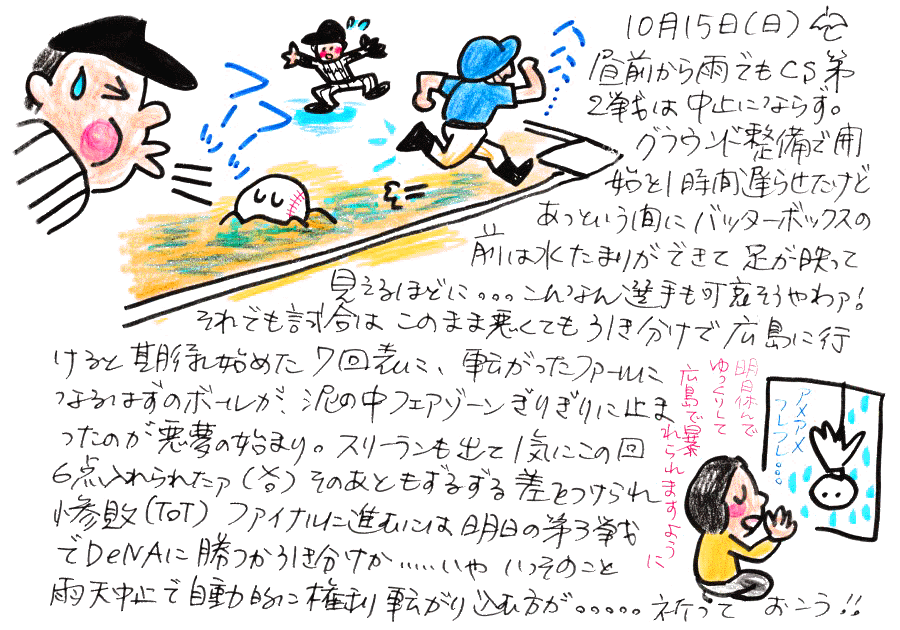 10月15日(日)
昼前から雨でもCS第
2戦は中止にならず。
グラウンド整備で開
始を1時間遅らせたけど
あっという間にバッターボックスの
前は水たまりができて足が映って
見えるほどに。。。こんなん選手も可哀そうやわァ!
それでも試合はこのまま悪くても引き分けで広島に行
けると期待し始めた7回表に、転がったファールに
なるはずのボールが、泥の中フェアゾーンぎりぎりに止ま
ったのが悪夢の始まり。スリーランも出て1気にこの回
6点入れられたァ(><)そのあともずるずる差をつけられ
惨敗(ToT) ファイナルに進むには明日の第3戦
でDeNAに勝つか引き分けか……いや いっそのこと
雨天中止で自動的に権利転がり込む方が。。。。。祈って おこう!!
明日休んで
ゆっくりして
広島で暴
れられますように
アメアメ
フレフレ。。。